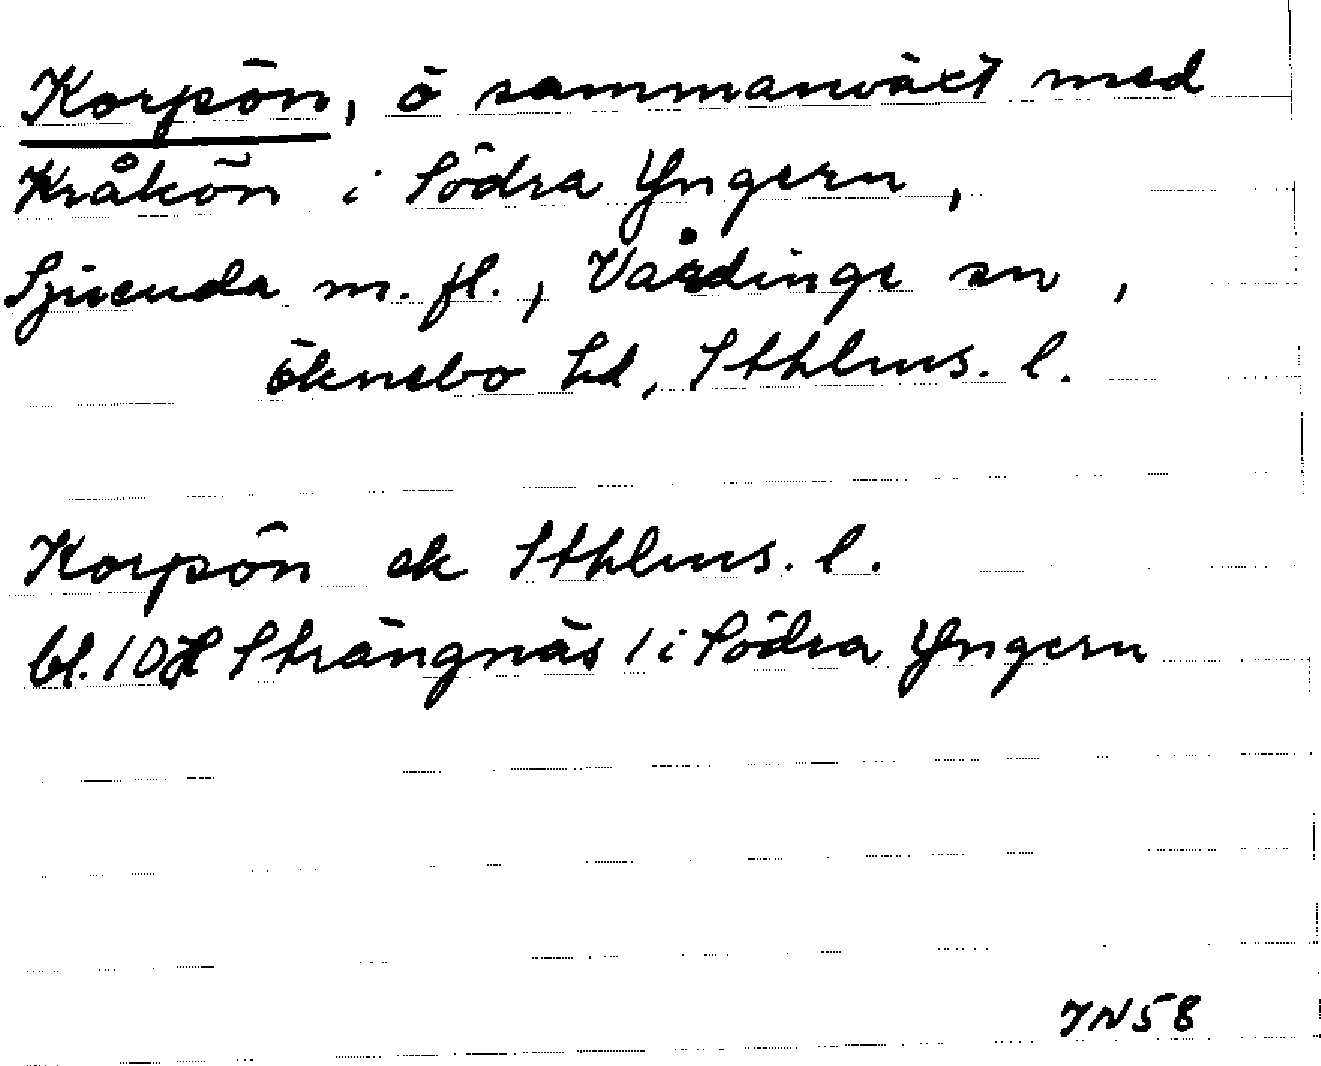 Korpön, ö sammanväxt med
Kråkön i Södra Yngern,
Sjuenda m. fl., Vårdinge sn,
Öknebo hd, Sthlms. l.
Korpön ek Sthlms. l.
bl. 10H Strängnäs / i Södra Yngern
YN58